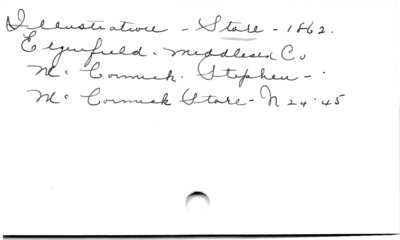 Illustration - Store - 1862.
Elginfield. Middlesex Co
Mc Cormick. Stephen -
Mc Cormick Store - N 24.45